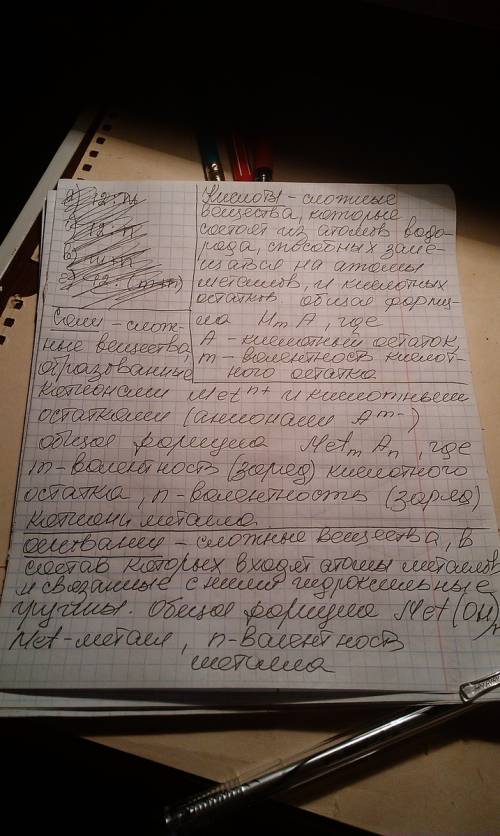 а) 12:n
б) 12:n
в) m:n
г) 12:(m·n)
Кислоты - сложные
вещества, которые
состоят из атомов водо-
рода, способных заме-
щаться на атомы
металлов, и кислотных
остатков общая форму-
ла HmA, где
A - кислотный остаток,
m - валентность кислот-
ного остатка
Соли - слож-
ные вещества,
образованные
катионами Metⁿ⁺ и кислотными
остатками (анионами Aᵐ⁻)
общая формула MetmAn, где
m - валентность (заряд) кислотного
остатка, n - валентность (заряд)
катиона металла
основания - сложные вещества, в
состав которых входят атомы металлов
и связанные с ними гидроксильные
группы. Общая формула Met(OH)n
Met - металл, n - валентность
металла